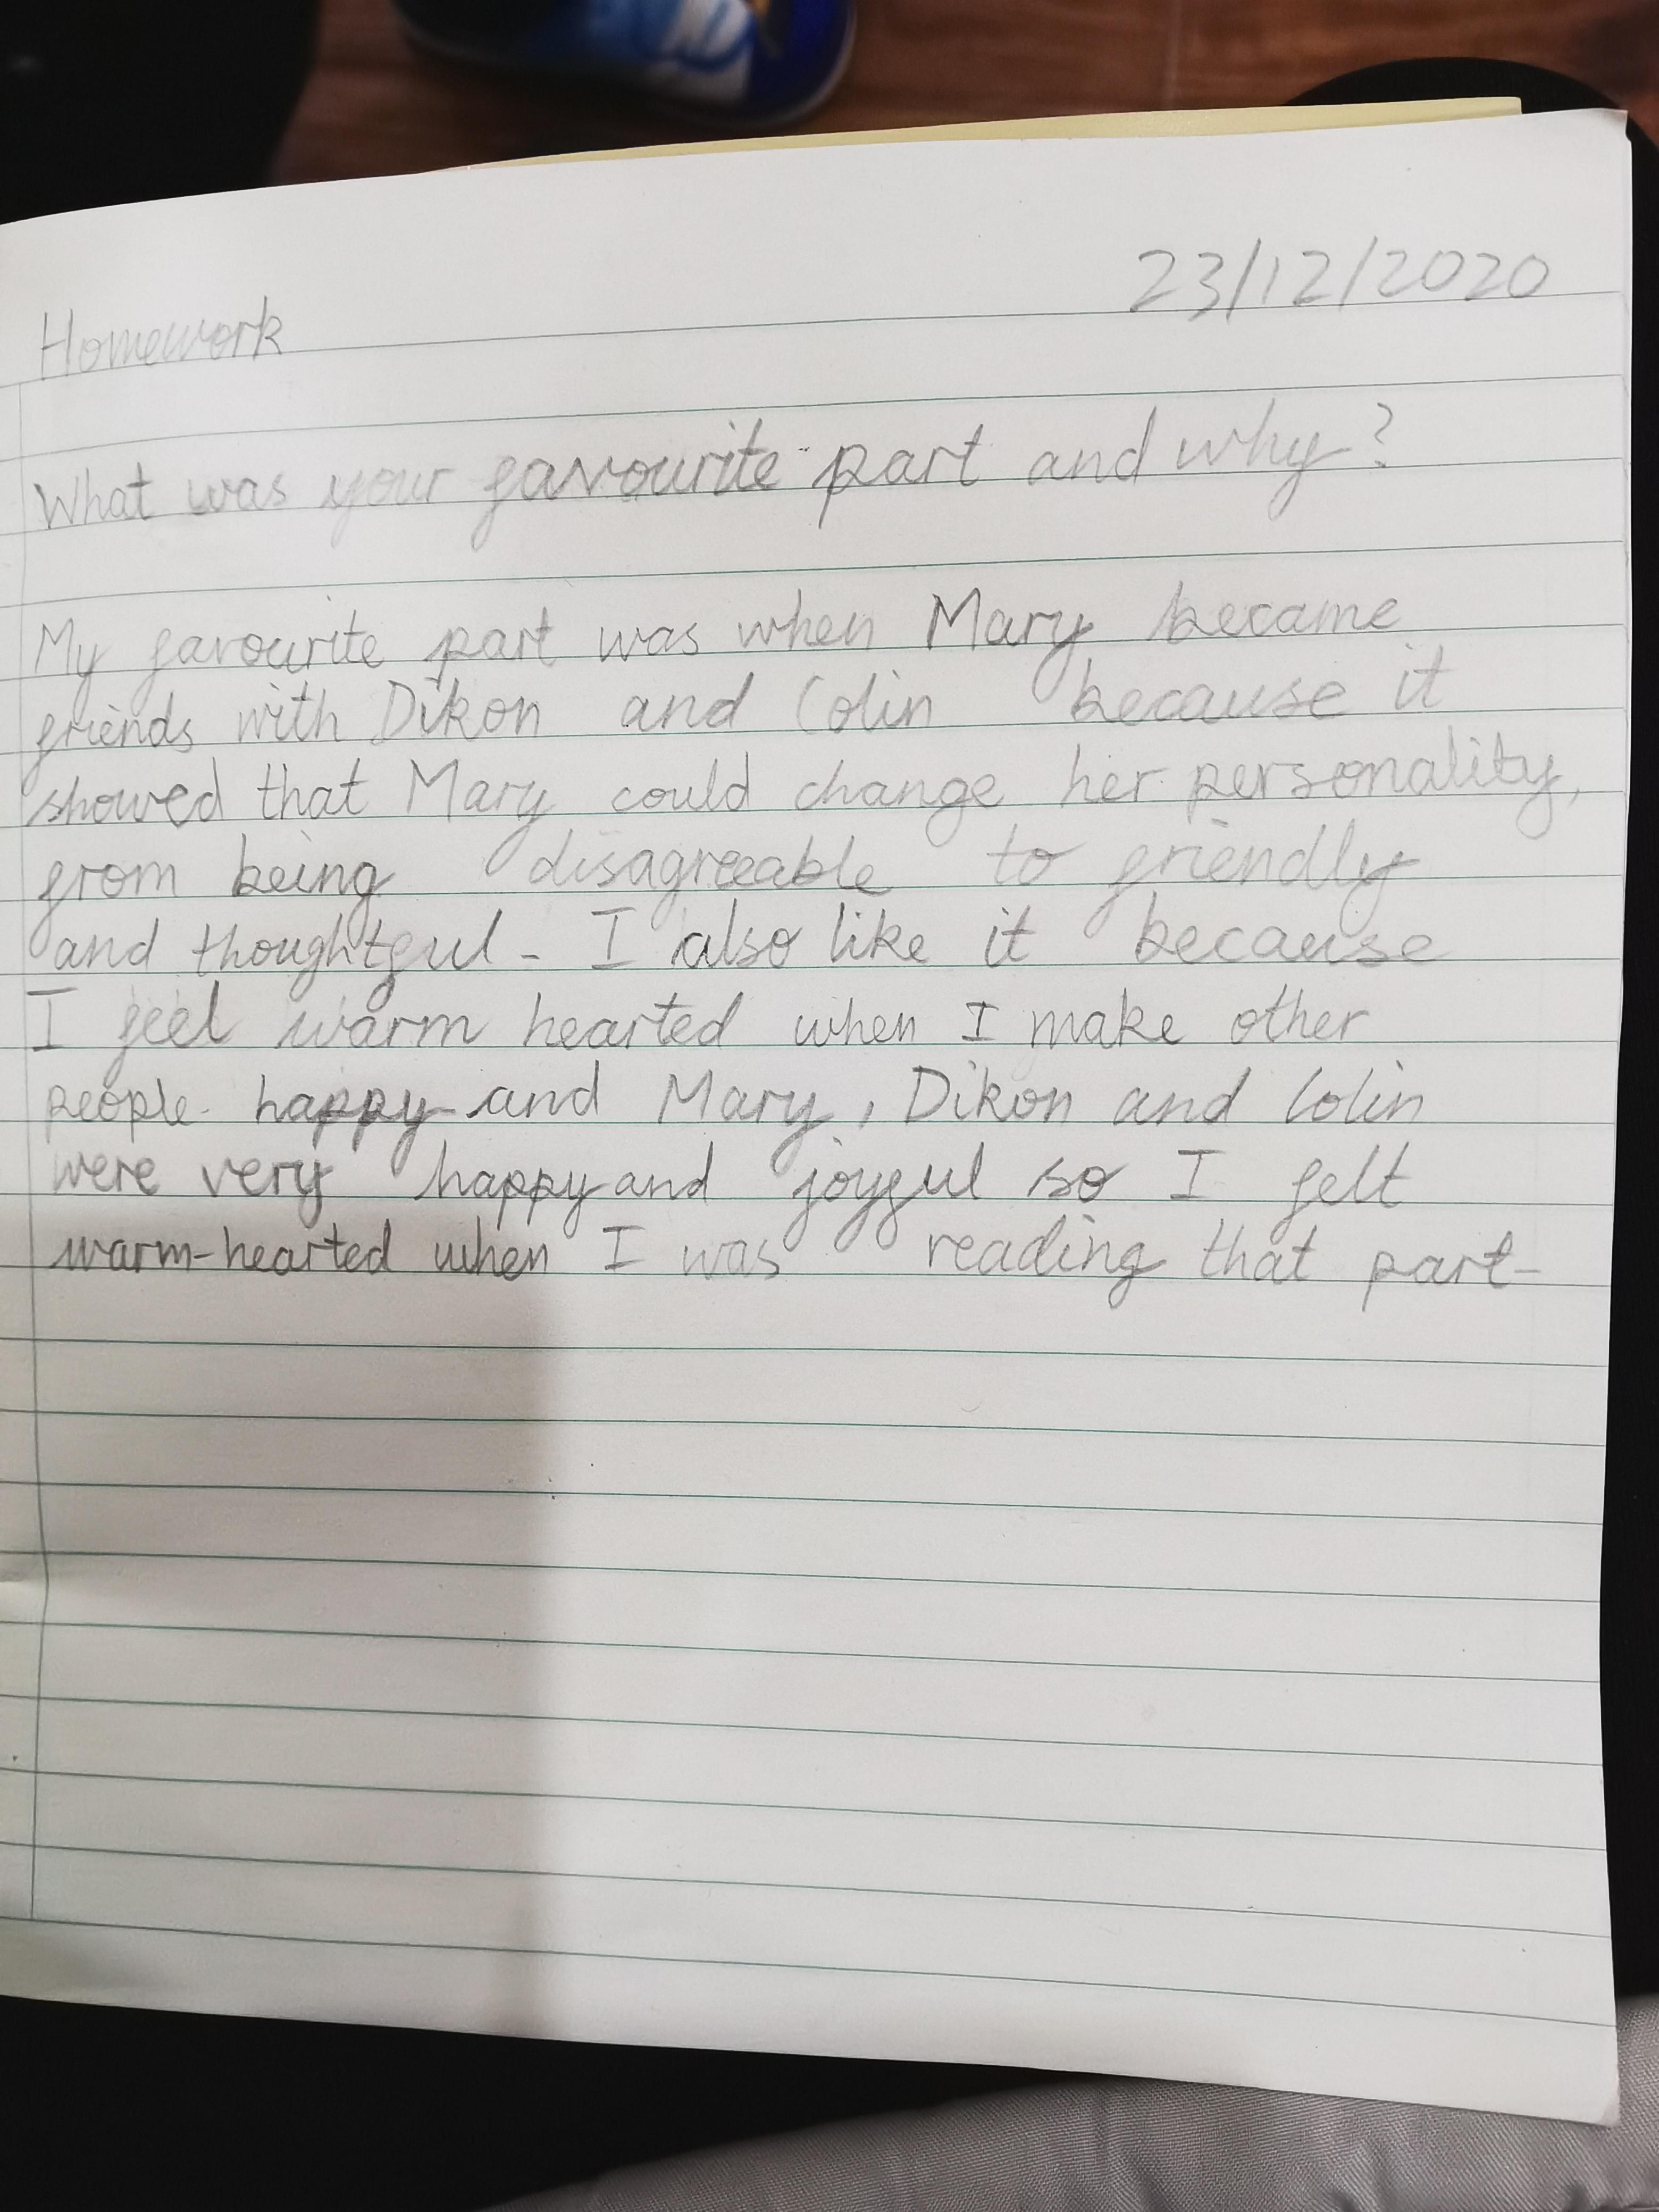 23/12/2020
Homework
What was your favourite part and why?
My favourite part was when Mary became
friends with Dikon and Colin because it
showed that Mary could change her personality,
from being disagreeable to friendly
and thoughtful. I also like it because
I feel warm hearted when I make other
people happy and Mary, Dikon and Colin
were very happy and joyful so I felt
warm-hearted when I was reading that part.